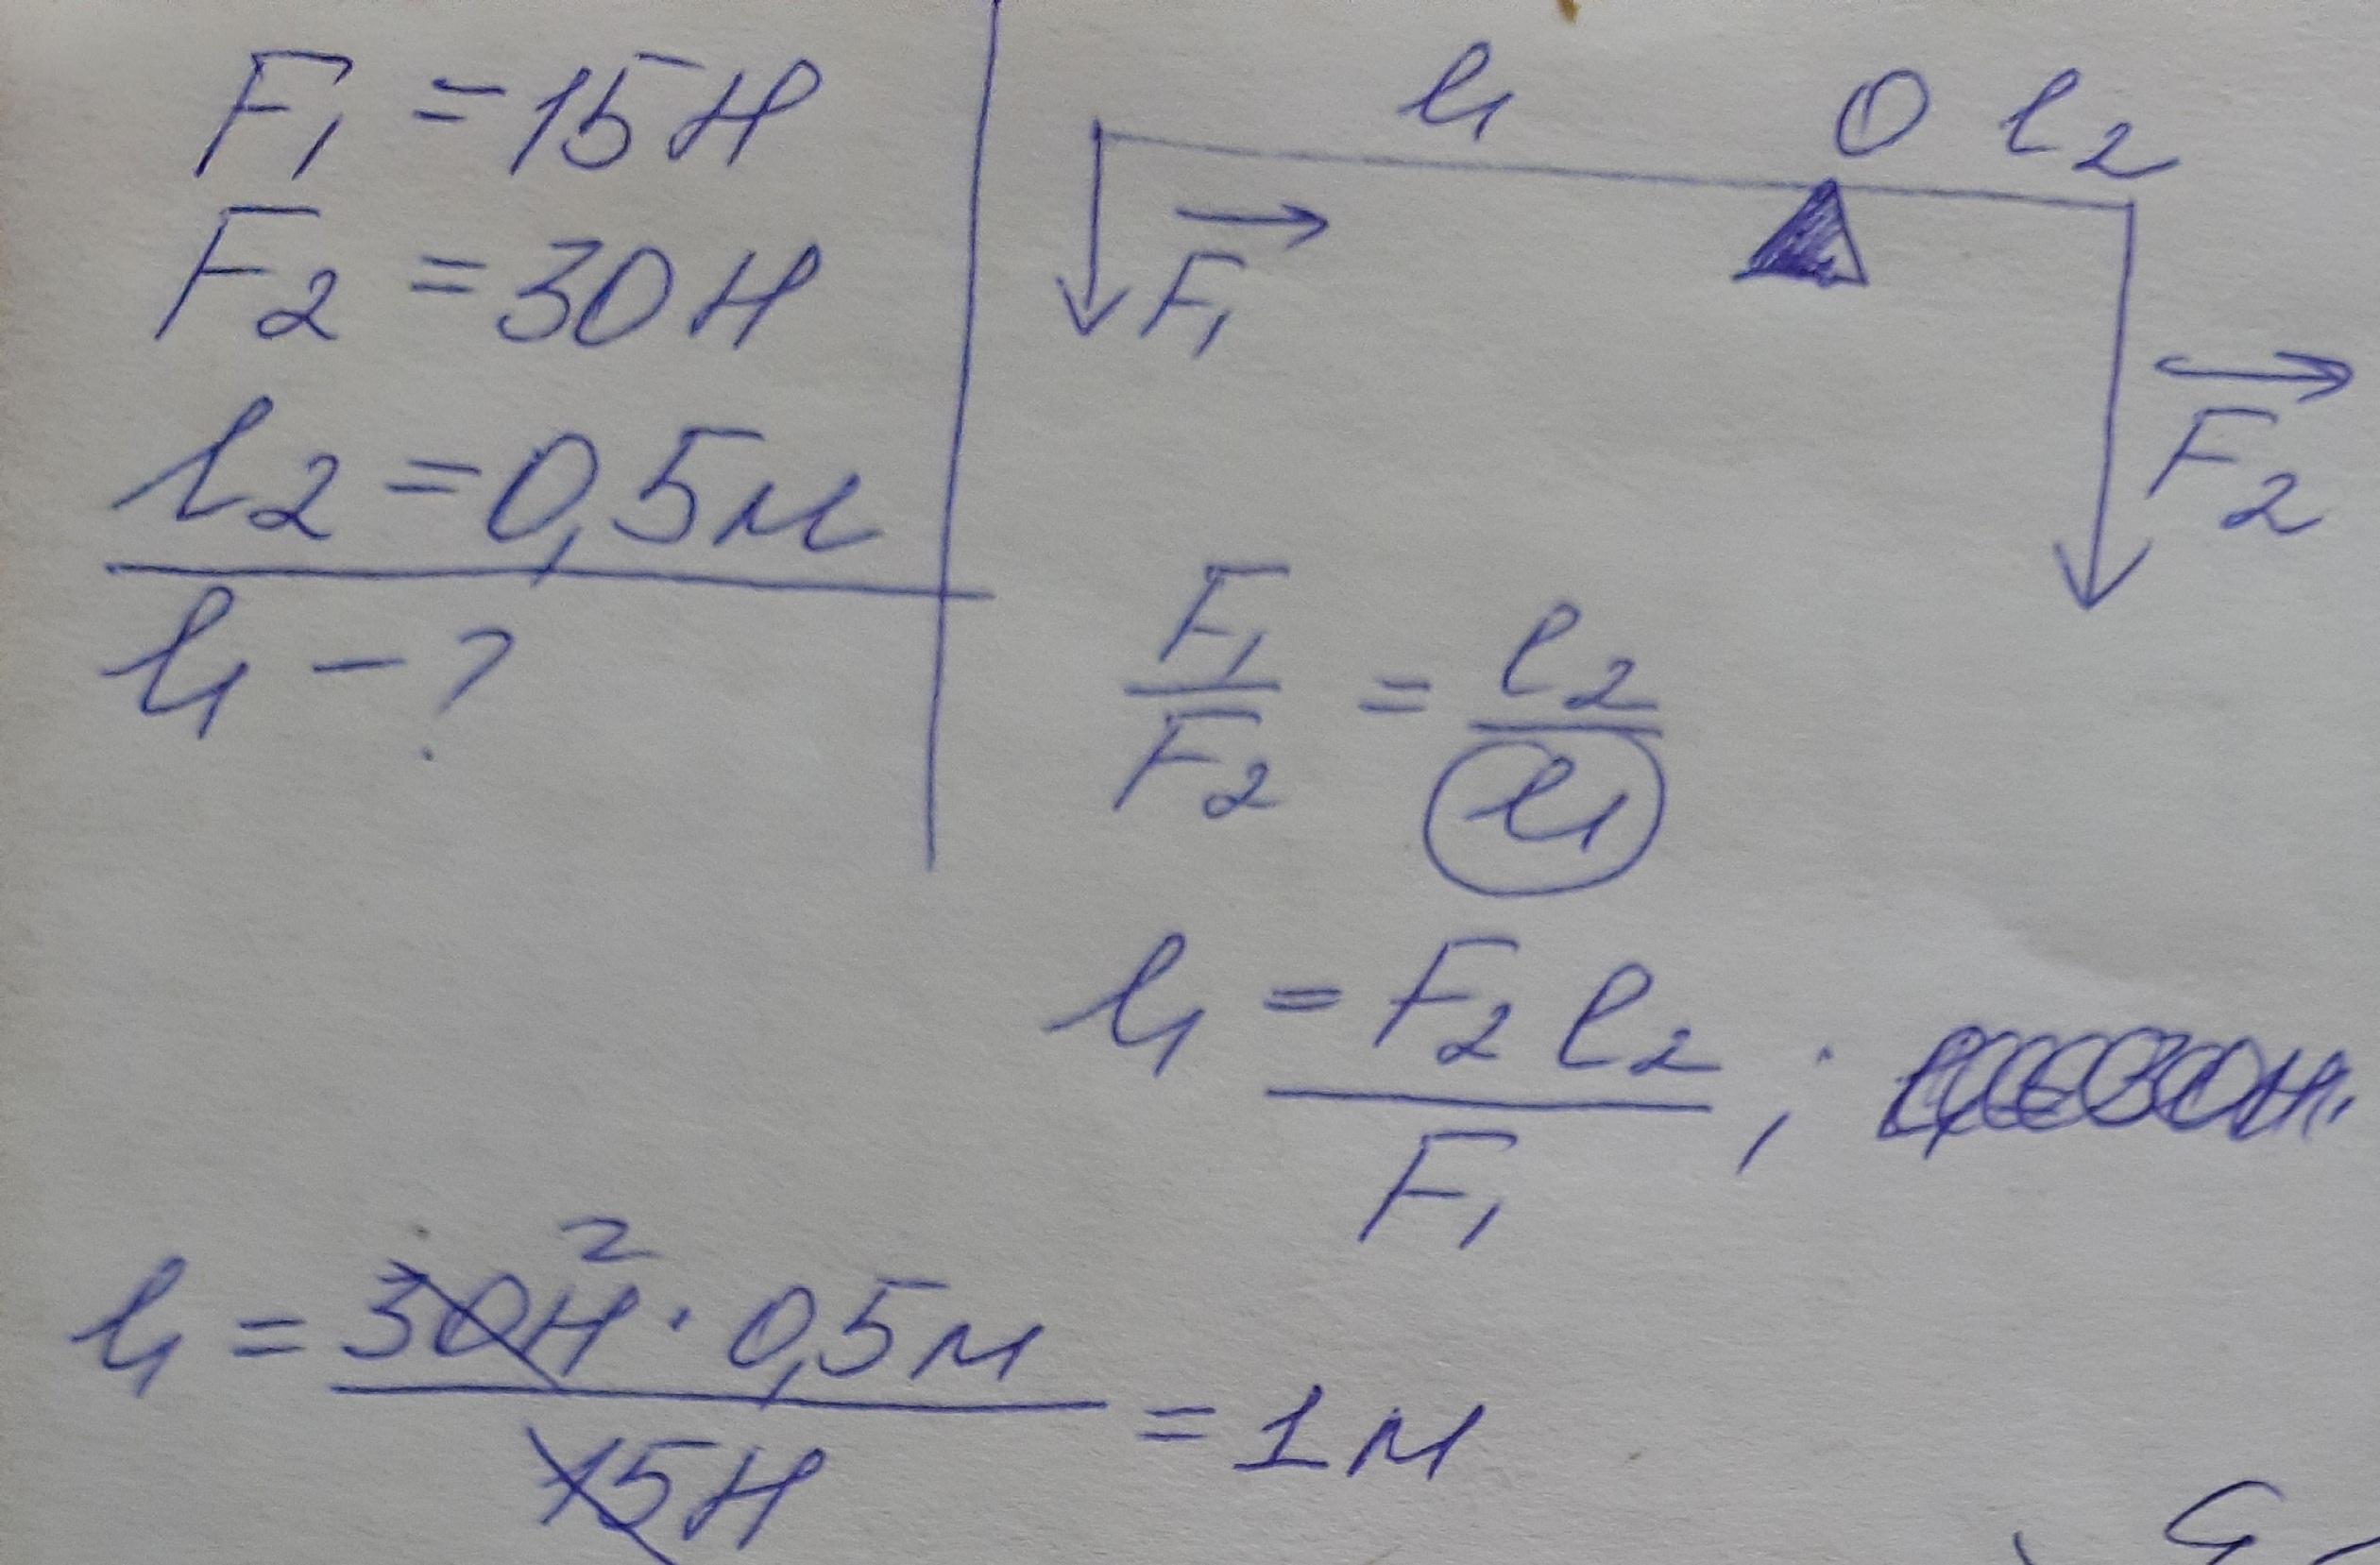 F₁ = 15 Н
F₂ = 30 Н
l₂ = 0,5 м
l₁ – ?
l₁ O l₂
F₁
F₂
F₁/F₂ = l₂/l₁
l₁ = F₂ l₂ / F₁ ;
l₁ = 30Н · 0,5 м / 15Н = 1 м
2